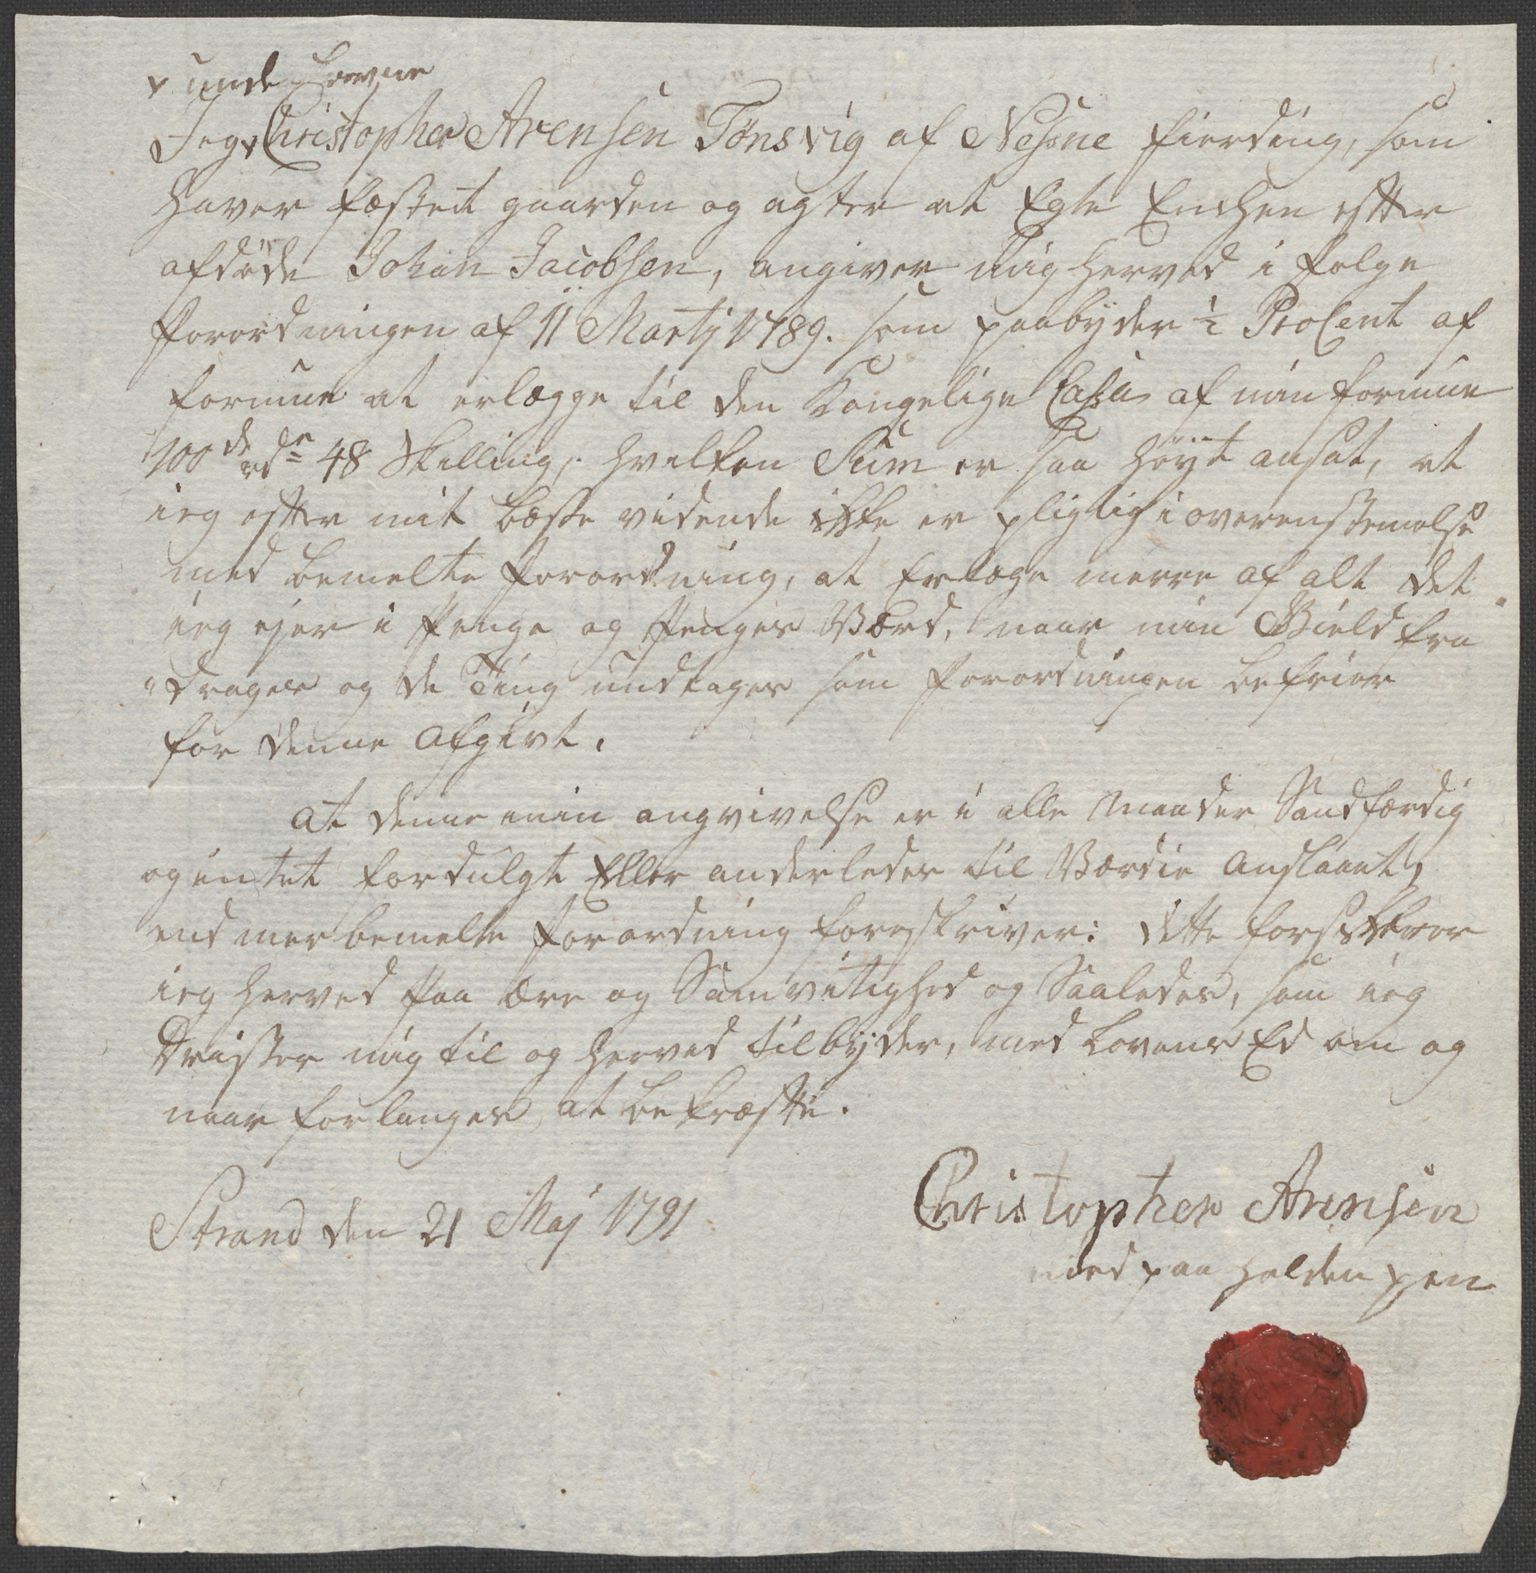 v unge karne
Jeg v Christopher Arensen Tønsvig af Nesne fierding, som
haver fæsted gaarden og agter at Egte Enchen efter
afdøde Johan Jacobsen, angiver mig herved i følge
Forordningen af 11 Martij 1789. som paabyder ½ ProCent af
formue at erlægge til den Kongelige Cassa af min formue
100de rdr 48 Skilling, hvilken Sum er saa høyt ansat, at
ieg efter mit beste vidende ikke er pligtig i overenstemelse
med bemelte Forordning, at Erlege merre af alt det
ieg ejer i Penge og Penges Værd, naar min Gield fra
drages og de Ting undtages som Forordningen befrier
for denne Afgivt.
At denne min angivivelse er i alle Maader Sandfærdig
og intet fordulgt Eller anderledes til Værdie Anslaaet,
end merbemelte Forordning foreskriver: dette forsikkrer
ieg herved paa ære og Samvitighed og Saaledes, som ieg
Drister mig til og herved tilbyder, med Lovens Ed om og
naar forlanges, at bekræfte.
Strand den 21 Maj 1791
Christopher Arensen
med paa holden pen